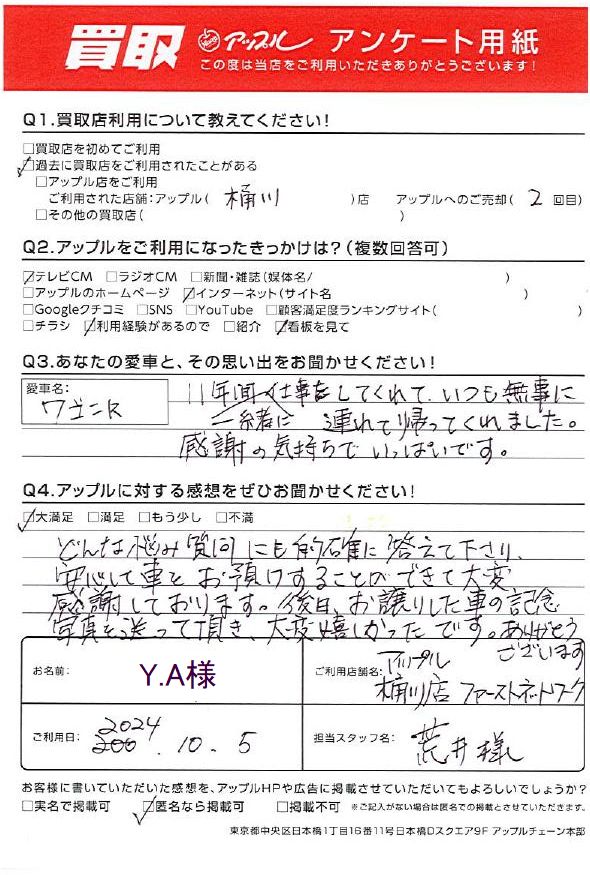 買取 アップル アンケート用紙
この度は当店をご利用いただきありがとうございます!
Q1.買取店利用について教えてください!
□買取店を初めてご利用
☑過去に買取店をご利用されたことがある
□アップル店をご利用
ご利用された店舗:アップル( 桶川 )店 アップルへのご売却( 2 回目)
□その他の買取店( )
Q2.アップルをご利用になったきっかけは?(複数回答可)
☑テレビCM □ラジオCM □新聞・雑誌(媒体名/ )
□アップルのホームページ ☑インターネット(サイト名 )
□Googleクチコミ □SNS □YouTube □顧客満足度ランキングサイト( )
□チラシ ☑利用経験があるので □紹介 ☑看板を見て
Q3.あなたの愛車と、その思い出をお聞かせください!
愛車名: ワゴンR
11年間 仕事をしてくれて、いつも無事に
一緒に 連れて帰ってくれました。
感謝の気持ちでいっぱいです。
Q4.アップルに対する感想をぜひお聞かせください!
☑大満足 □満足 □もう少し □不満
どんな悩み質問にも的確に答えて下さり、
安心して車を お預けすることができて大変
感謝しております。後日、お譲りした車の記念
写真を送って頂き、大変嬉しかったです。ありがとう
ございます
お名前: Y.A様
ご利用店舗名: アップル
桶川店 ファーストネットワーク
ご利用日: 2024 . 10 . 5
担当スタッフ名: 荒井様
お客様に書いていただいた感想を、アップルHPや広告に掲載させていただいてもよろしいでしょうか?
□実名で掲載可 ☑匿名なら掲載可 □掲載不可 ※ご記入がない場合は匿名での掲載とさせていただきます。
東京都中央区日本橋1丁目16番11号日本橋Dスクエア9F アップルチェーン本部